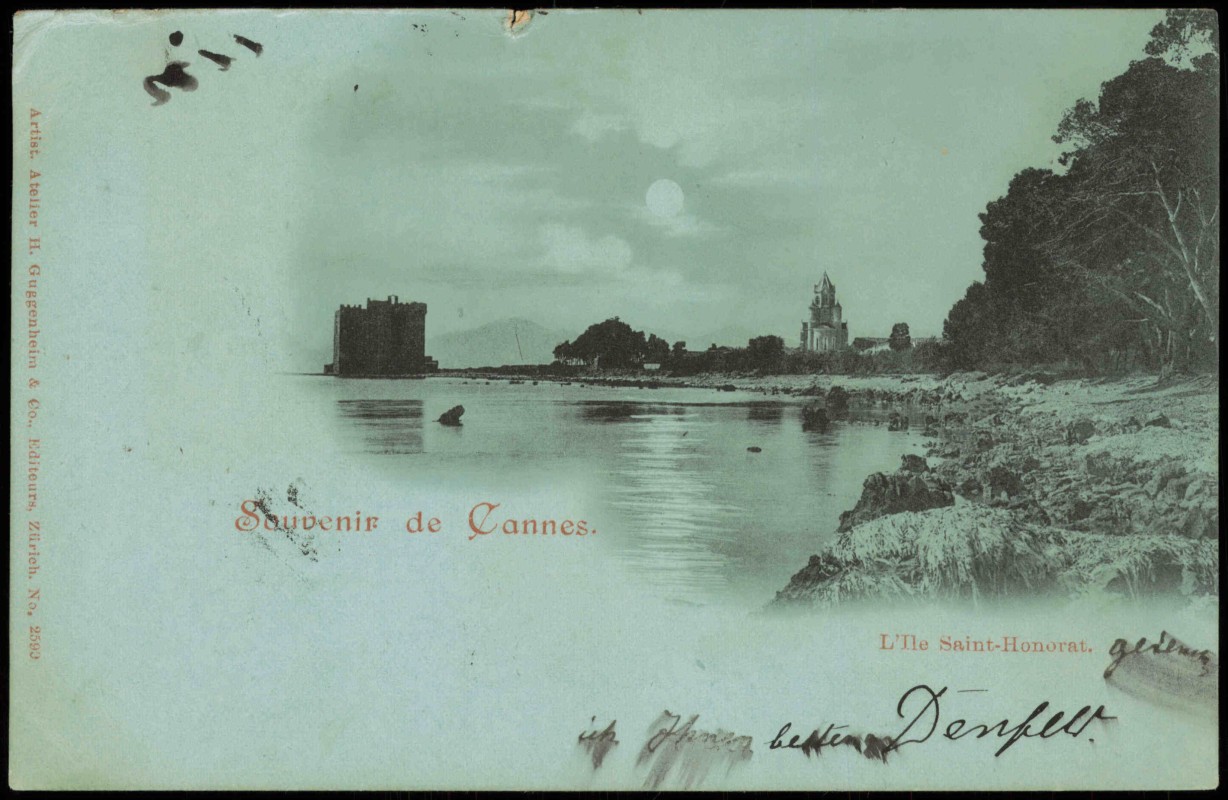 Artist. Atelier H. Guggenheim & Co., Editeurs, Zürich. No. 2590
Souvenir de Cannes.
L'Ile Saint-Honorat.
ich Ihnen besten Denfeld.